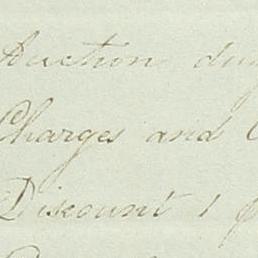 Auction du
Charges and
Discount 1